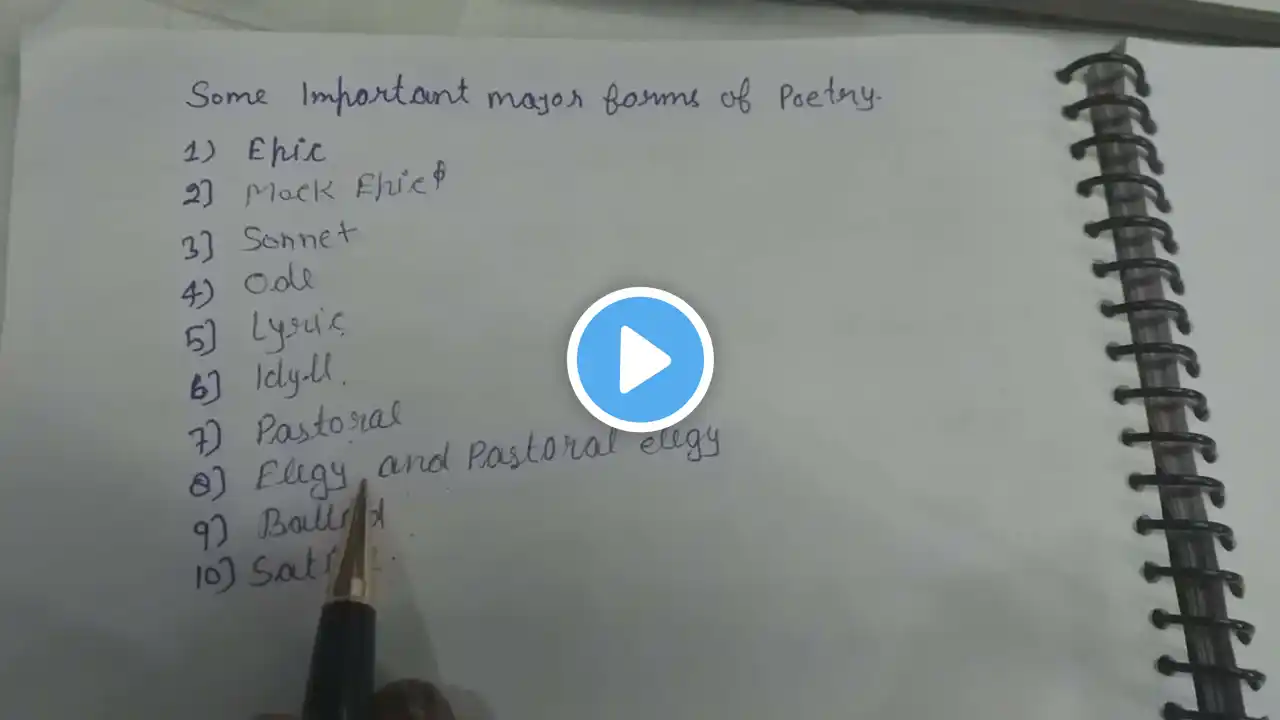 Some Important major forms of Poetry.
1) Epic
2] Mock Epic
3] Sonnet
4) Ode
5] Lyric
6] Idyll.
7) Pastoral
8) Elegy and Pastoral elegy
9) Ballad
10)